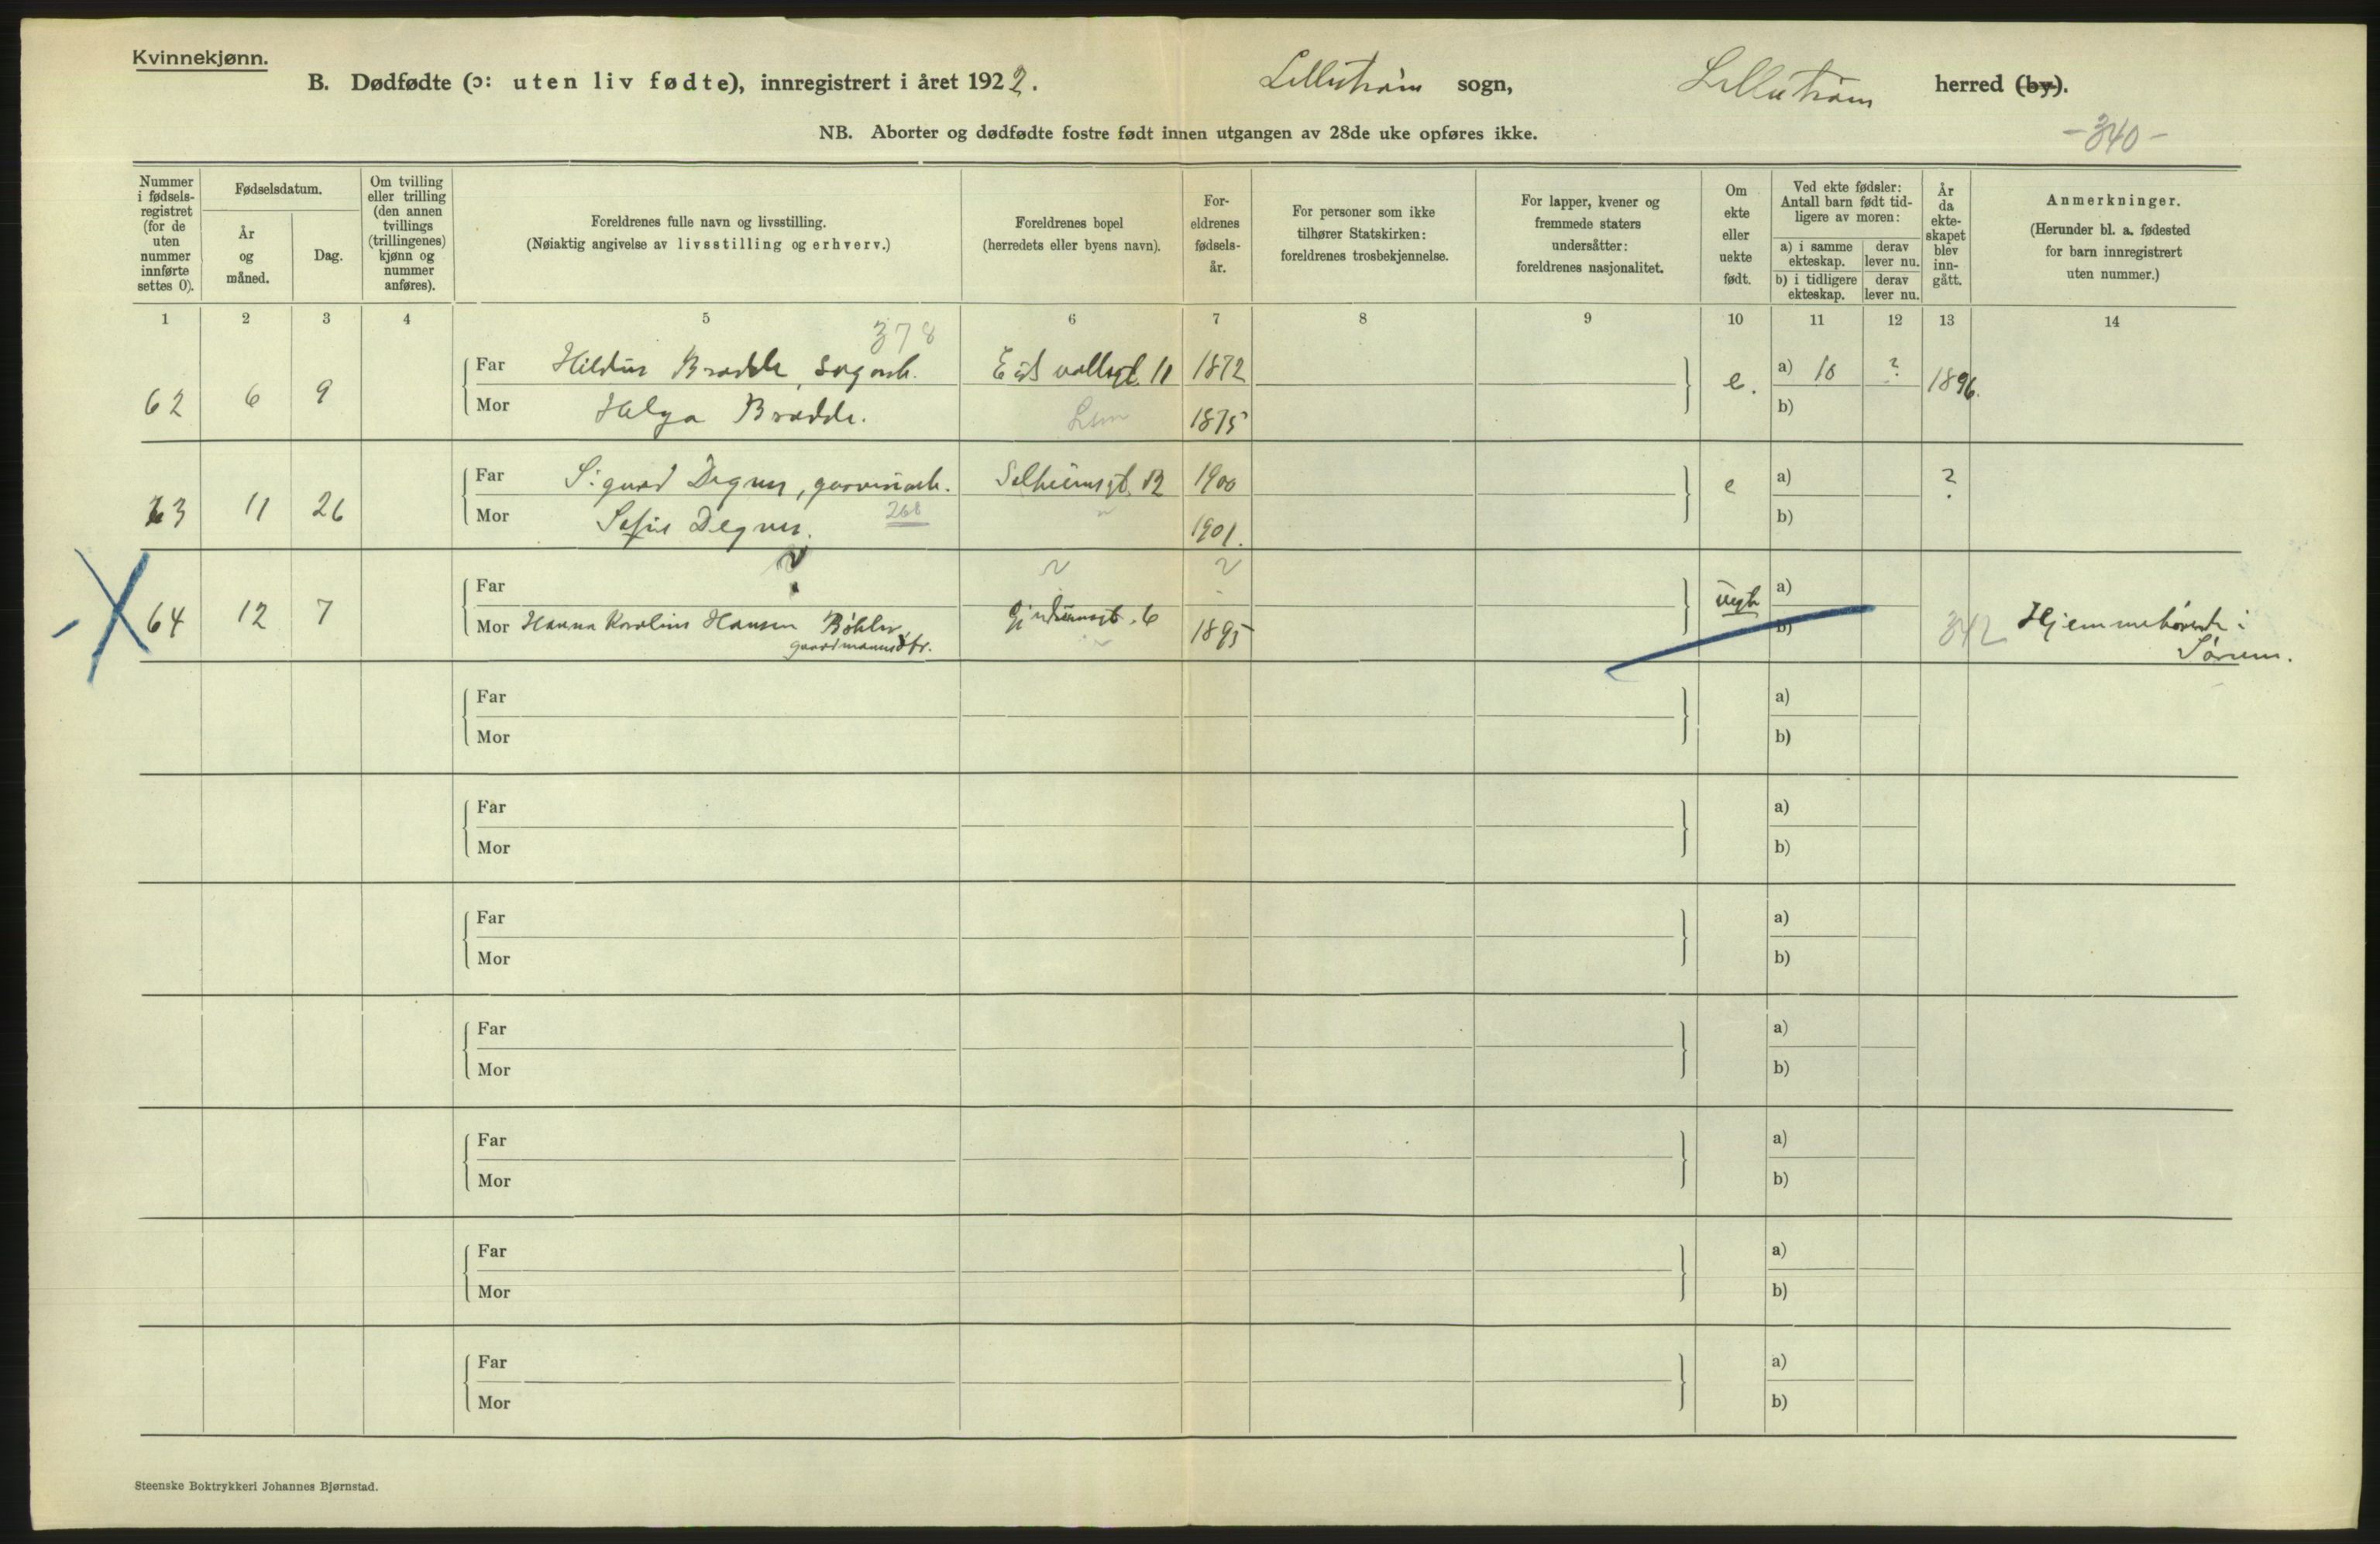 Kvinnekjønn.
B. Dødfødte (ɔ: uten liv fødte), innregistrert i året 1922. Lillestrøm sogn, Lillestrøm herred (by).
NB. Aborter og dødfødte fostre født innen utgangen av 28de uke opføres ikke.
-340-
Nummer
i fødsels-
registret
(for de
uten
nummer
innførte
settes 0).
Fødselsdatum.
År
og
måned.
Dag.
Om tvilling
eller trilling
(den annen
tvillings
(trillingenes)
kjønn og
nummer
anføres).
Foreldrenes fulle navn og livsstilling.
(Nøiaktig angivelse av livsstilling og erhverv.)
Foreldrenes bopel
(herredets eller byens navn).
For-
eldrenes
fødsels-
år.
For personer som ikke
tilhører Statskirken:
foreldrenes trosbekjennelse.
For lapper, kvener og
fremmede staters
undersåtter:
foreldrenes nasjonalitet.
Om
ekte
eller
uekte
født.
Ved ekte fødsler:
Antall barn født tid-
ligere av moren:
a) i samme
ekteskap.
derav
lever nu.
b) i tidligere
ekteskap.
derav
lever nu.
År
da
ekte-
skapet
blev
inn-
gått.
Anmerkninger.
(Herunder bl. a. fødested
for barn innregistrert
uten nummer.)
1 2 3 4 5 6 7 8 9 10 11 12 13 14
378
Far Hildur Brodde, sagarb. Eidsvollsgt. 11 1872 a) 10 ?
62 6 9 e. 1896.
Mor Helga Brodde. Lsm 1875 b)
Far Sigurd Degnes, garveriarb. Solheimsgt. 12 1900 a) ?
63 11 26 e
Mor Sofie Degnes. 268 " 1901. b)
Far ? ? ? a)
64 12 7 uegte
Mor Hanna Karoline Hansen Bøhler gaardmannsdtr. Gjerdrumsgt. 6 1895 b) 342 Hjemmehørende i
Sørum.
Far a)
Mor b)
Far a)
Mor b)
Far a)
Mor b)
Far a)
Mor b)
Far a)
Mor b)
Far a)
Mor b)
Far a)
Mor b)
Steenske Boktrykkeri Johannes Bjørnstad.